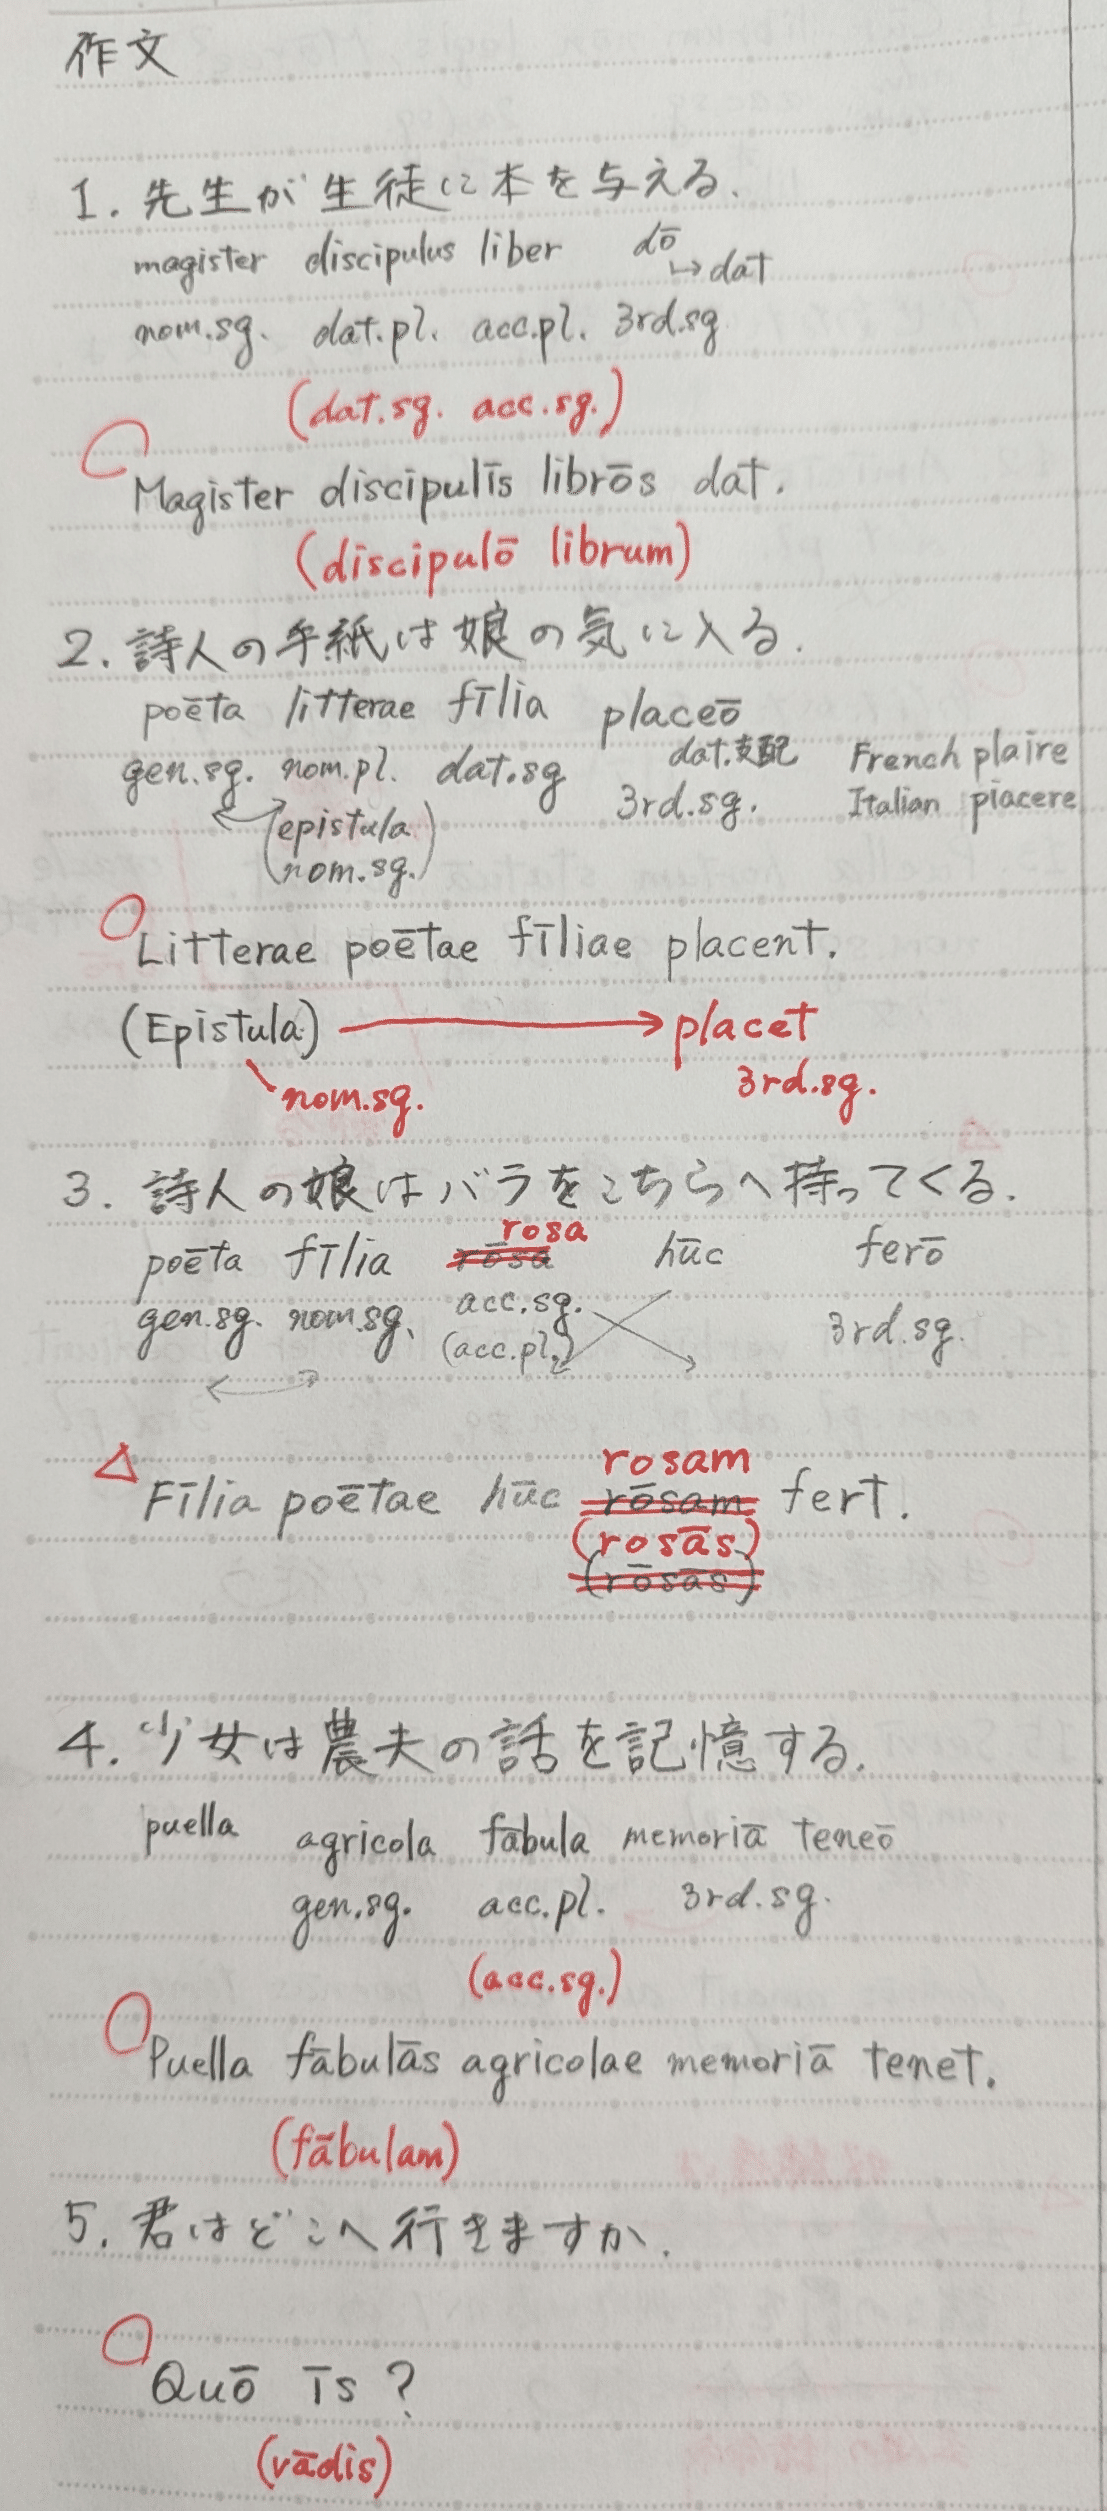 作文
1. 先生が生徒に本を与える.
magister discipulus liber dō
↦ dat
nom.sg. dat.pl. acc.pl. 3rd.sg
(dat.sg. acc.sg.)
Magister discipulīs librōs dat.
(discipulō librum)
2. 詩人の手紙は娘の気に入る.
poēta litterae fīlia placeō
gen.sg. nom.pl. dat.sg dat.支配 French plaire
3rd.sg. Italian piacere
(epistula
nom.sg.)
Litterae poētae fīliae placent.
(Epistula) → placet
nom.sg. 3rd.sg.
3. 詩人の娘はバラをこちらへ持ってくる.
rosa
poēta fīlia rōsa hūc ferō
gen.sg. nom.sg. acc.sg. 3rd.sg.
(acc.pl.)
rosam
Fīlia poētae hūc rōsam fert.
(rosās)
(rōsās)
4. 少女は農夫の話を記憶する.
puella agricola fābula memoriā teneō
gen.sg. acc.pl. 3rd.sg.
(acc.sg.)
Puella fābulās agricolae memoriā tenet.
(fābulam)
5. 君はどこへ行きますか.
Quō īs ?
(vādis)